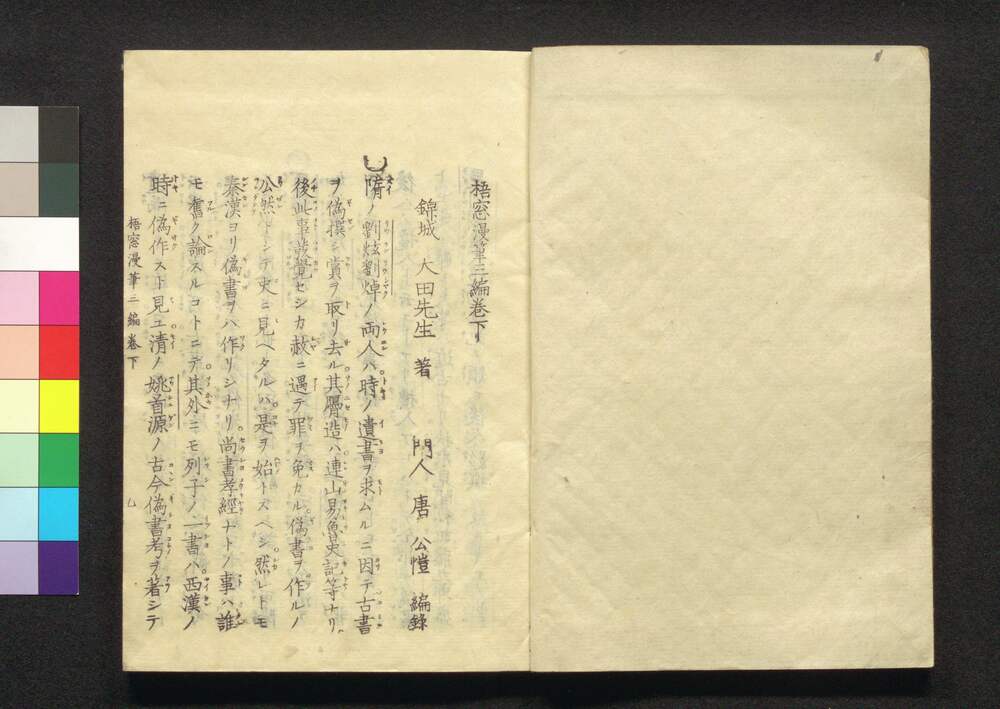 梧窓漫筆三編卷下
錦城 大田先生 著 門人 唐 公愷 編錄
隋ノ劉炫劉焯ノ両人ハ時ノ遺書ヲ求ムルニ因テ古書
ヲ偽撰シ賞ヲ取リ去ル其贋造ハ連山易魯史記等ナリ
後此事發覺セシカ赦ニ遇テ罪ヲ免カル偽書ヲ作ルノ
公然トシテ史ニ見ヘタルハ是ヲ始トスヘシ然レトモ
秦漢ヨリ偽書ヲハ作リシナリ尚書孝經ナトノ事ハ誰
モ舊ク論スルコトニテ其外ニモ列子ノ一書ハ西漢ノ
時ニ偽作スト見ユ清ノ姚首源ノ古今偽書考ヲ著シテ
梧窓漫筆三編卷下
乚